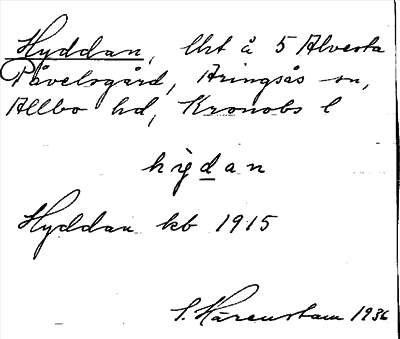 Hyddan, lht å 5 Alvesta
Påvelsgård, Aringsås sn,
Allbo hd, Kronobs l
hỳdan
Hyddan kb 1915
S. Hårenstam 1936